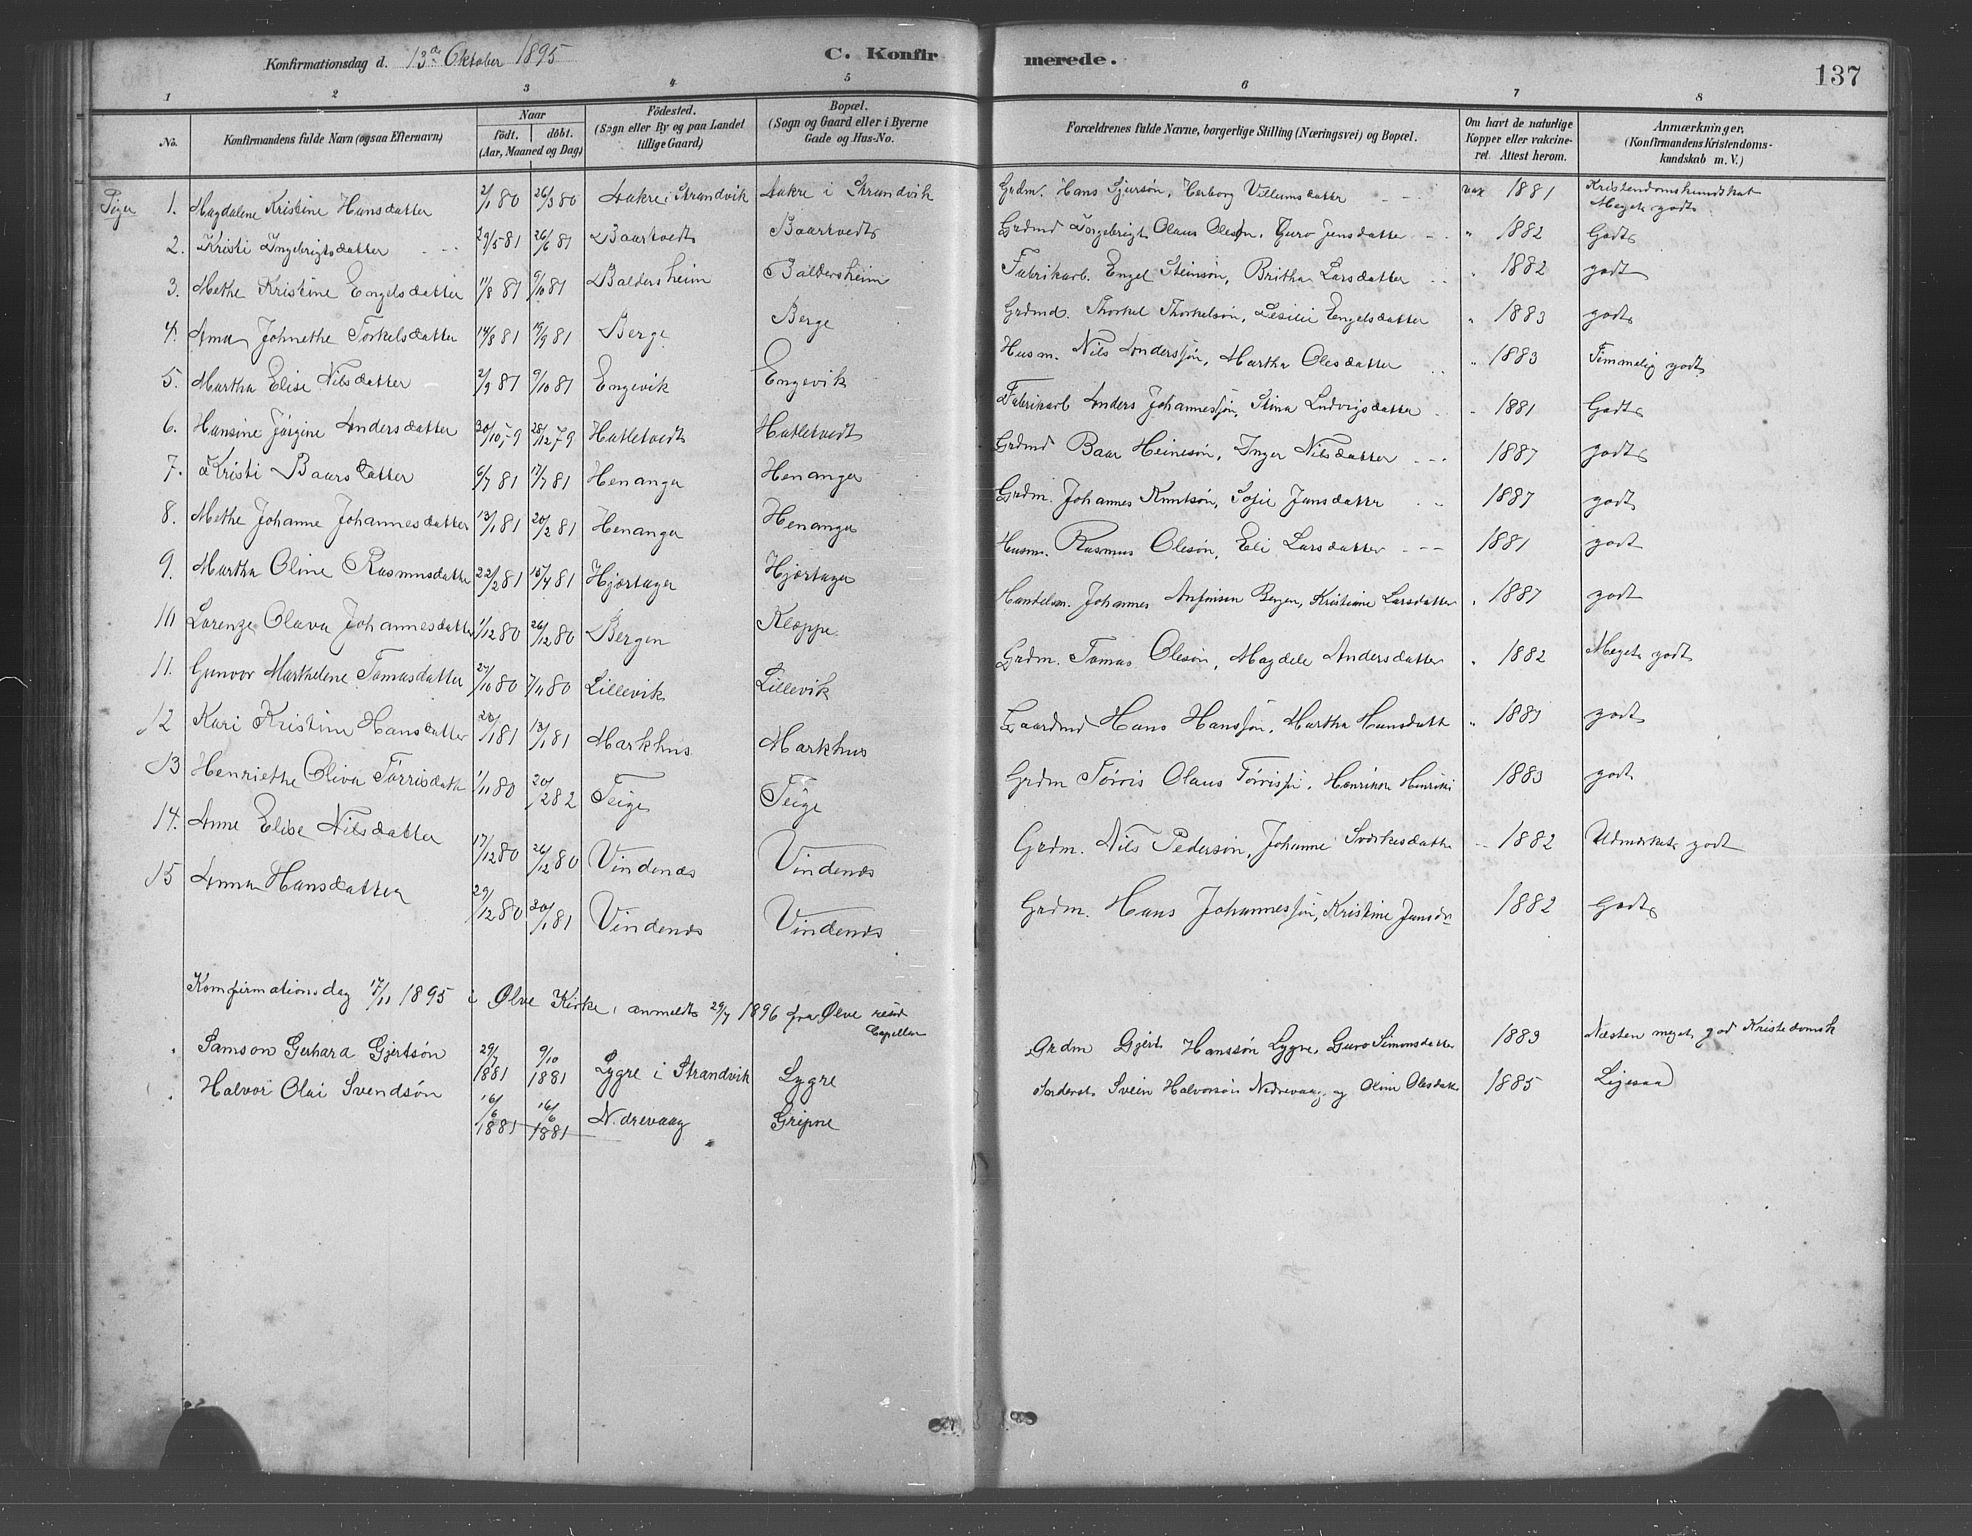 Konfirmationsdag d. 13de Oktober 1895 C. Konfirmerede. 137
1 2 3 4 5 6 7 8
No. Konfirmandens fulde Navn (ogsaa Efternavn) Naar födt. döbt. (Aar, Maaned og Dag) Födested. (Sogn eller By og paa Landet tillige Gaard) Bopæl. (Sogn og Gaard eller i Byerne Gade og Hus-No. Forældrenes fulde Navne, borgerlige Stilling (Næringsvei) og Bopæl. Om havt de naturlige Kopper eller vakcineret. Attest herom. Anmærkninger, (Konfirmandens Kristendomskundskab m. V.)
Piger 1. Magdalene Kristine Hansdatter 2/1 80 26/3 80 Aakre i Strandvik Aakre i Strandvik Grdm. Hans Sjursøn, Herborg Villumsdatter vax 1881 Kristendomskundskab Meget godt
2. Kristi Ingebrigtsdatter 29/5 81 26/6 81 Baartvedt Baartvedt Grdmd Ingebrigt Olaus Olesøn, Guro Jensdatter " 1882 Godt
3. Methe Kristine Engelsdatter 11/8 81 9/10 81 Baldersheim Baldersheim Fabrikarb. Engel Steinsøn, Britha Larsdatter 1882 godt
4. Anna Johnethe Torkelsdatter 14/8 81 19/9 81 Berge Berge Grdmd. Thorkel Thorkelsøn, Engelsdatter " 1883 godt
5. Martha Elise Nilsdatter 2/9 81 9/10 81 Engevik Engevik Husm. Nils Anderssøn, Martha Olesdatter " 1883 Temmelig godt
6. Hansine Jørgine Andersdatter 30/10 79 28/12 79 Hatletvedt Hatletvedt Fabrikarb Anders Johannessøn, Stina Ludvigsdatter 1881 Godt
7. Kristi Baarsdatter 6/7 81 17/7 81 Henanger Henanger Grdmd Baar Heinesøn, Inger Nilsdatter 1887 godt
8. Methe Johanne Johannesdatter 13/1 81 20/2 81 Henanger Henanger Grdm. Johannes Knutsøn, Sofie Jansdatter 1887 godt
9. Martha Oline Rasmusdatter 22/2 81 15/4 81 Hjortager Hjortager Husm. Rasmus Olesøn, Eli Larsdatter 1881 godt
10 Lorenze Olava Johannesdatter 1/12 80 26/12 80 Bergen Kloppe Handelsm. Johannes Anfinsen Bergen, Kristiane Larsdatter 1887 godt
11. Gunvor Marthelene Tomasdatter 27/10 80 7/11 80 Lillevik Lillevik Grdm. Tomas Olesøn, Magdele Andersdatter " 1882 Meget godt
12 Kari Kristine Hansdatter 13/1 81 Markhus Markhus Gaardmd Hans Hanssøn, Martha Hansdatt " 1881 godt
13 Henriethe Oliva Tørrisdatt 1/11 80 20/2 82 Teige Teige Grdm Tørris Olaus 1883 godt
14. Anne Elise Nilsdatter 17/12 80 26/12 80 Vindenes Vindenes Grdm. Nils Pedersøn, Johanne 1882 Udmærket godt
15 Anna Hansdatter 29/12 80 30/1 81 Vindenes Vindenes Grdm. Hans Johannessøn, Kristine 1882 Godt
Konfirmationsdag 17/11 1895 i Ølve Kirke, anmeldt 29/7 1896 fra Ølve resid Capellan
Samson Gerhard Gjertsøn 29/7 1881 9/10 1881 Lygre i Strandvik Lygre Grdm Gjert Hanssøn Lygre, Guro Simonsdatter 1883 Næsten meget god Kristendomsk
Halvor Olai Svendsøn 16/6 1881 16/6 1881 Nedrevaag Gripne Svein Halvorsøn Nedrevaag og Oline Olesdatter 1885 Ligesaa